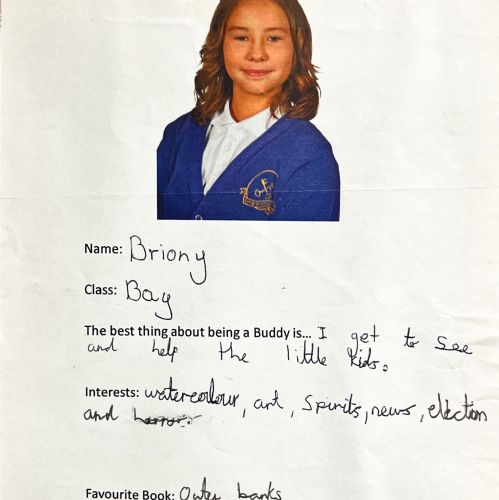 Name: Briony
Class: Bay
The best thing about being a Buddy is... I get to see
and help the little kids.
Interests: watercolour, art, spirits, news, election
and horror.
Favourite Book: Outer banks